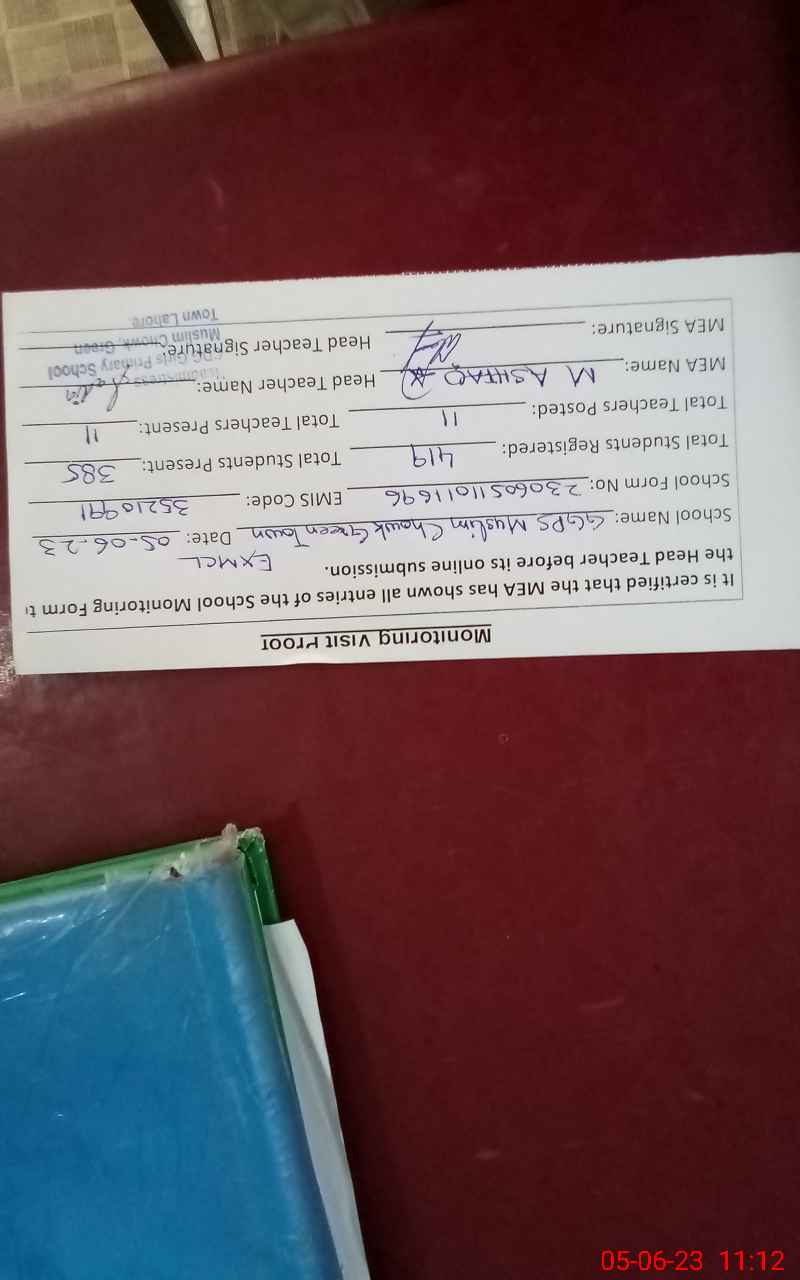 Monitoring Visit Proof
It is certified that the MEA has shown all entries of the School Monitoring Form t
the Head Teacher before its online submission.
EXMCL
School Name: GGPS Muslim Chowk Green Town Date: 05-06-23
School Form No: 23060511011696 EMIS Code: 35210991
Total Students Registered: 419 Total Students Present: 385
Total Teachers Posted: 11 Total Teachers Present: 11
MEA Name: M ASHFAQ Head Teacher Name:
MEA Signature: Head Teacher Signature:
Girls Primary School
Muslim Chowk, Green
Town Lahore
05-06-23 11:12